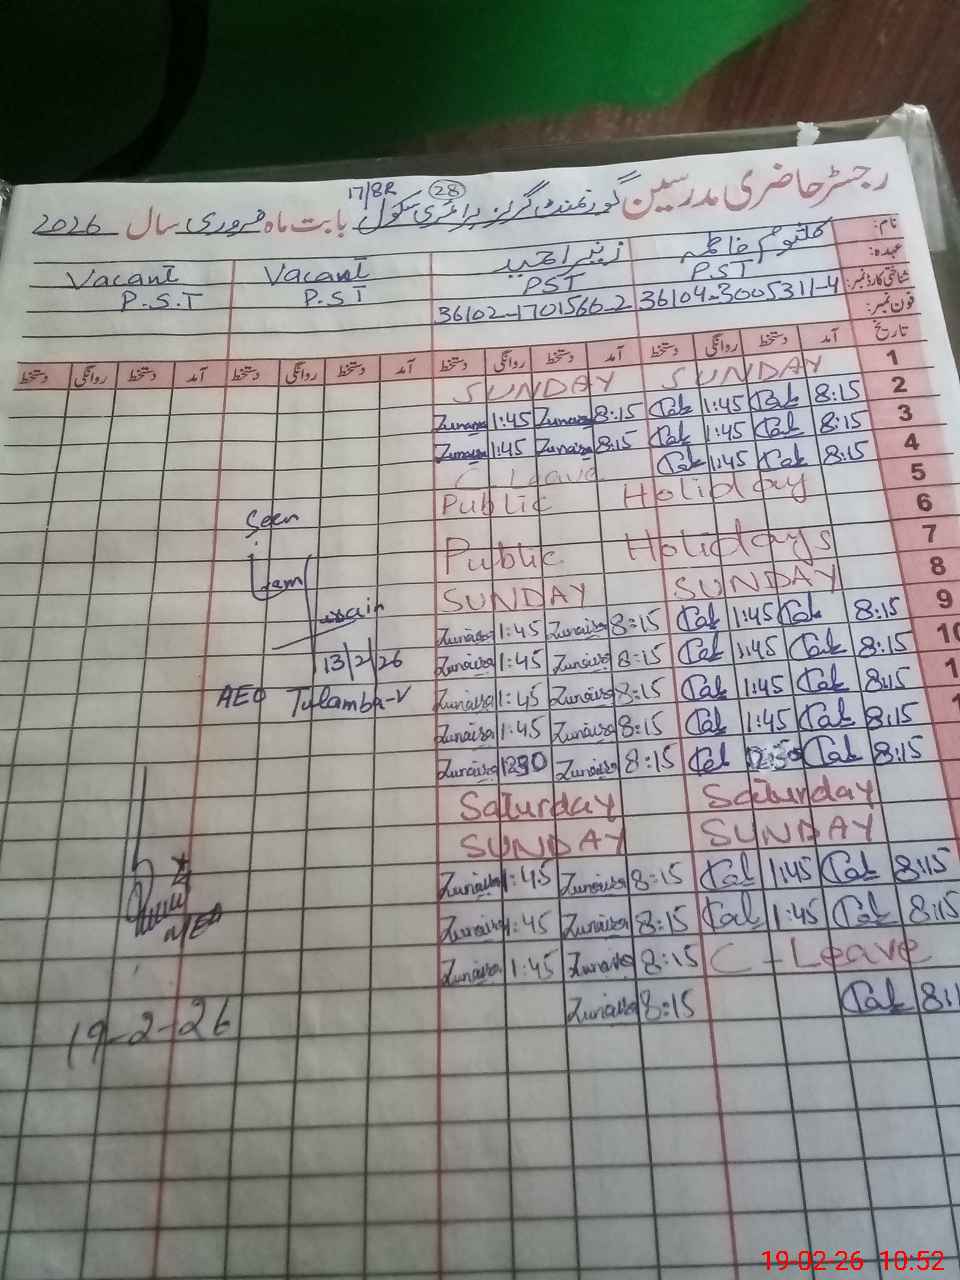 رجسٹر حاضری مدرسین گورنمنٹ گرلز پرائمری سکول 17/8R (28) بابت ماہ فروری سال 2026
نام: کلثوم فاطمہ Vacant Vacant
عہدہ: PST PST P.S.T P.S.T
شناختی کارڈ نمبر: 36104-3005311-4 36102-1701566-2
فون نمبر:
تاریخ آمد دستخط روانگی دستخط آمد دستخط روانگی دستخط آمد دستخط روانگی دستخط آمد دستخط روانگی دستخط
1 SUNDAY SUNDAY
2 8:15 1:45 Zunaira 8:15 Zunaira 1:45
3 8:15 1:45 Zunaira 8:15 Zunaira 1:45
4 8:15 1:45 C-Leave
5 Public Holiday
6
7 Public Holidays
8 SUNDAY SUNDAY
9 8:15 1:45 Zunaira 8:15 Zunaira 1:45
10 8:15 1:45 Zunaira 8:15 Zunaira 1:45
1 8:15 1:45 Zunaira 8:15 Zunaira 1:45
1 8:15 1:45 Zunaira 8:15 Zunaira 1:45
8:15 Zunaira 8:15 Zunaira 1230
Saturday Saturday
SUNDAY SUNDAY
8:15 1:45 Zunaira 8:15 Zunaira 1:45
8:15 1:45 Zunaira 8:15 Zunaira 1:45
C-Leave Zunaira 8:15 Zunaira 1:45
8:1 Zunaira 8:15
Seen
13/2/26
AEO Tulamba-V
19-2-26
19-02-26 10:52